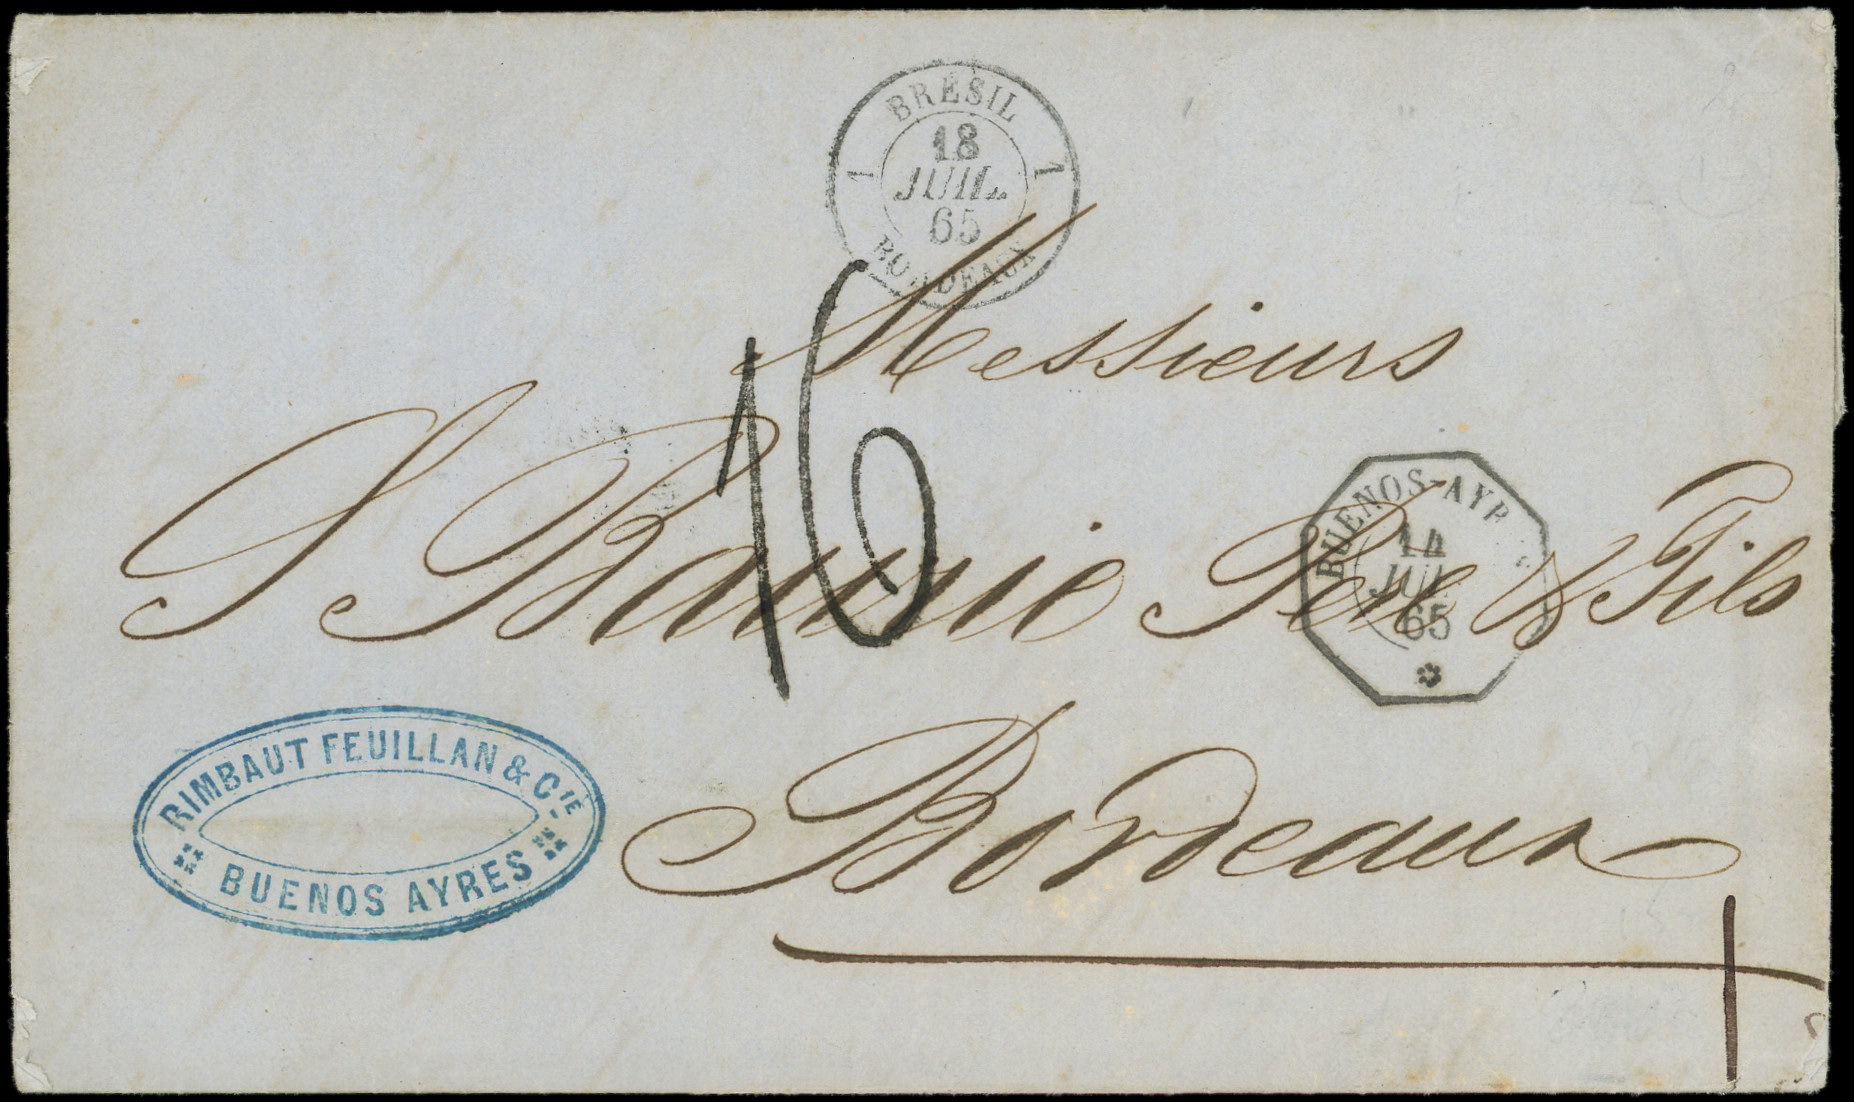 BRESIL
1 18 1
JUIL.
65
BORDEAUX
Messieurs
16
BUENOS-AYR
14
JUIL
65
Pere & Fils
Bordeaux
RIMBAUT FEUILLAN & CIE
BUENOS AYRES